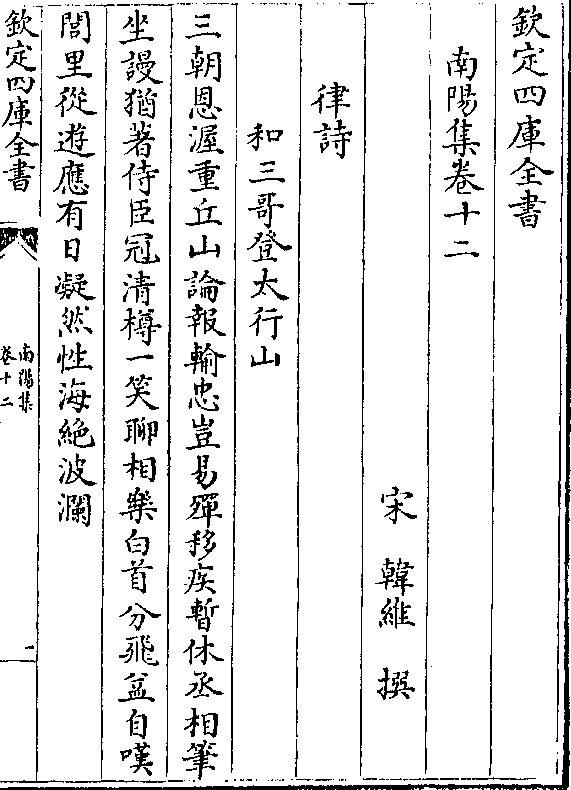 欽定四庫全書
南陽集卷十二
宋 韓維 撰
律詩
和三哥登太行山
三朝恩渥重丘山論報輸忠豈易殫移疾暫休丞相筆
坐謾猶著侍臣冠清樽一笑聊相樂白首分飛益自嘆
閭里從遊應有日凝然性海絶波瀾
欽定四庫全書
南陽集
卷十二
一